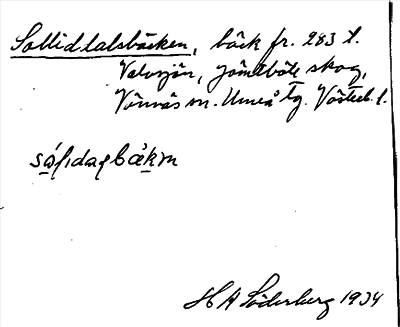 Sollidtalsbäcken, bäck fr. 283 t.
Valvsjön, Jämtböle skog,
Vännäs sn. Umeå tg. Västerb. l.
H A Söderberg 1934